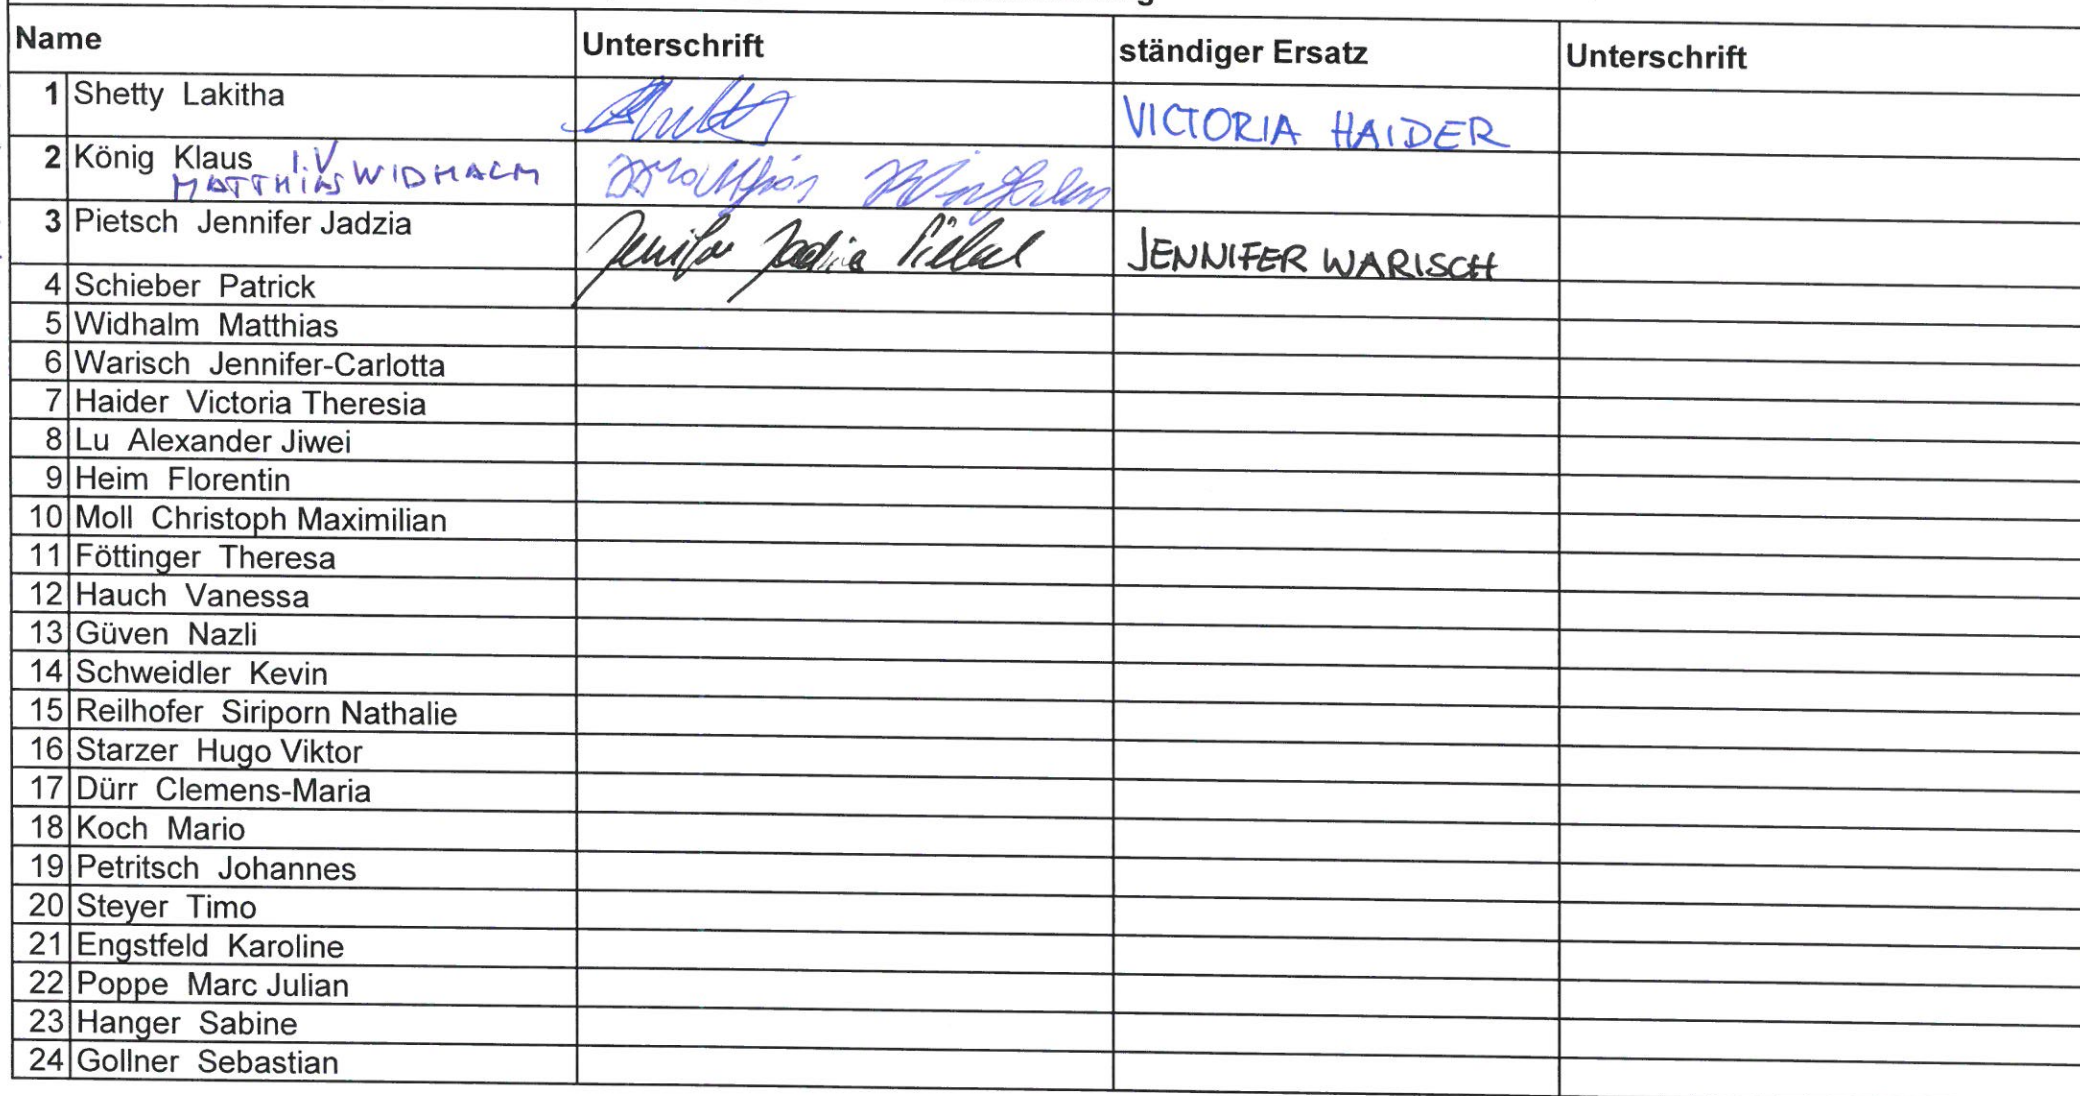 Name Unterschrift ständiger Ersatz Unterschrift
1 Shetty Lakitha VICTORIA HAIDER
2 König Klaus I.V
MATTHIAS WIDHALM Matthias Widhalm
3 Pietsch Jennifer Jadzia Jennifer Jadzia JENNIFER WARISCH
4 Schieber Patrick
5 Widhalm Matthias
6 Warisch Jennifer-Carlotta
7 Haider Victoria Theresia
8 Lu Alexander Jiwei
9 Heim Florentin
10 Moll Christoph Maximilian
11 Föttinger Theresa
12 Hauch Vanessa
13 Güven Nazli
14 Schweidler Kevin
15 Reilhofer Siriporn Nathalie
16 Starzer Hugo Viktor
17 Dürr Clemens-Maria
18 Koch Mario
19 Petritsch Johannes
20 Steyer Timo
21 Engstfeld Karoline
22 Poppe Marc Julian
23 Hanger Sabine
24 Gollner Sebastian